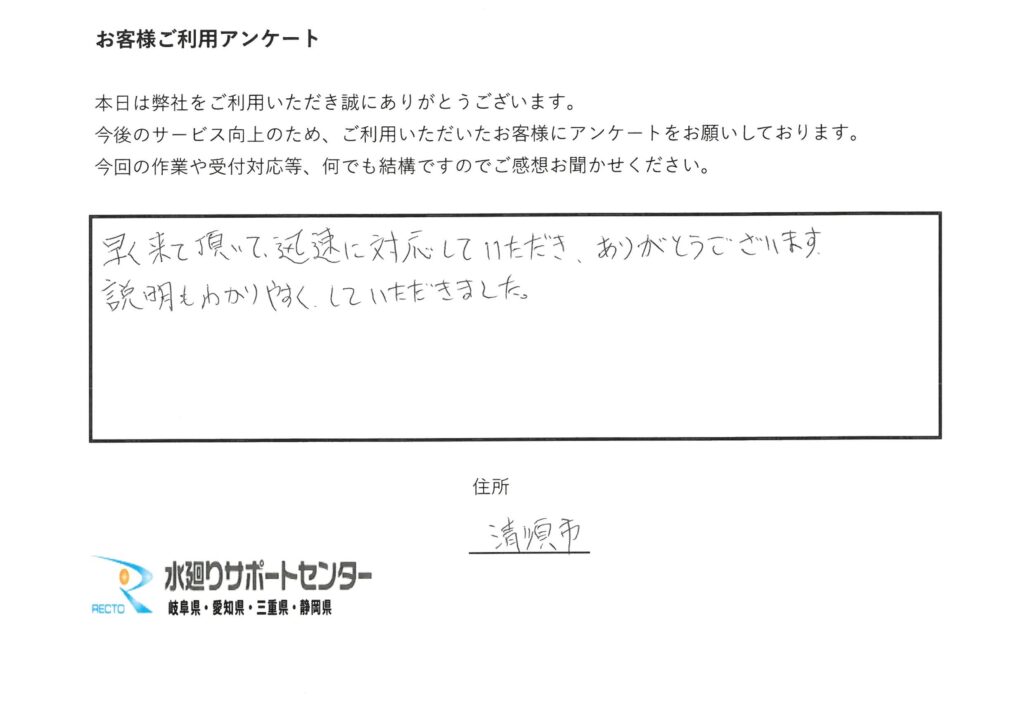 お客様ご利用アンケート
本日は弊社をご利用いただき誠にありがとうございます。
今後のサービス向上のため、ご利用いただいたお客様にアンケートをお願いしております。
今回の作業や受付対応等、何でも結構ですのでご感想お聞かせください。
早く来て頂いて、迅速に対応していただき、ありがとうございます.
説明もわかりやすく、していただきました。
住所
清須市
水廻りサポートセンター
RECTO 岐阜県・愛知県・三重県・静岡県